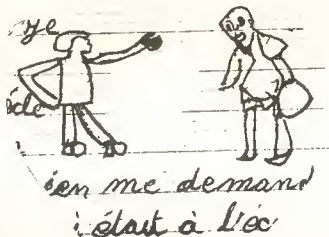 ye
écle
ien me demand
était à l'éc